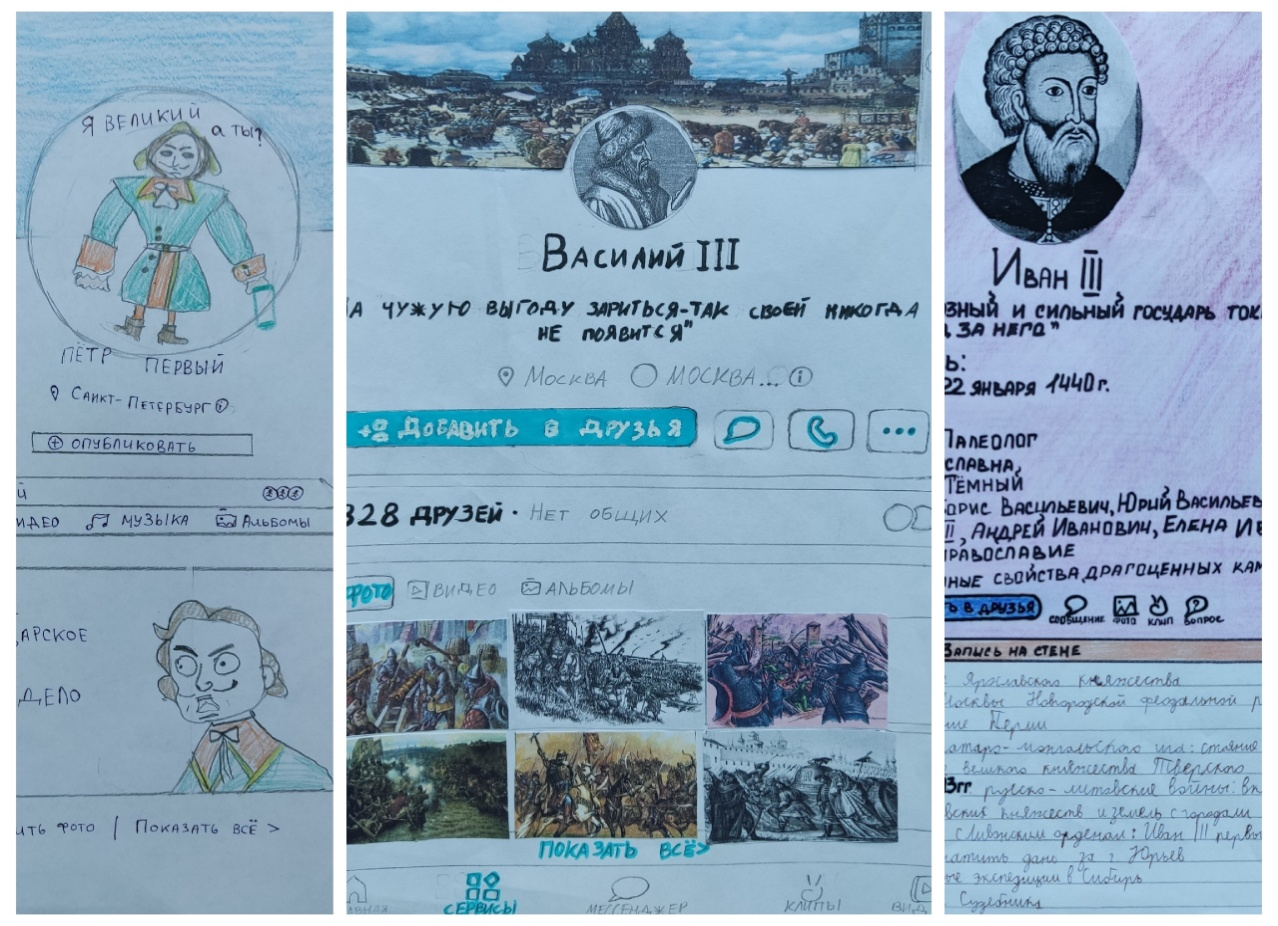 Я ВЕЛИКИЙ
а ты?
ПЁТР ПЕРВЫЙ
САНКТ-ПЕТЕРБУРГ
ОПУБЛИКОВАТЬ
Й
ИДЕО МУЗЫКА АЛЬБОМЫ
АРСКОЕ
ДЕЛО
ИТЬ ФОТО | ПОКАЗАТЬ ВСЁ >
ВАСИЛИЙ III
А ЧУЖУЮ ВЫГОДУ ЗАРИТЬСЯ-ТАК СВОЕЙ НИКОГДА
НЕ ПОЯВИТСЯ"
МОСКВА МОСКВА...
ДОБАВИТЬ В ДРУЗЬЯ
328 ДРУЗЕЙ · НЕТ ОБЩИХ
ФОТО ВИДЕО АЛЬБОМЫ
ПОКАЗАТЬ ВСЁ>
АВНАЯ СЕРВИСЫ МЕССЕНДЖЕР КЛИПЫ ВИД
ИВАН III
ЗНЫЙ И СИЛЬНЫЙ ГОСУДАРЬ ТОК
ЗА НЕГО"
Ь:
22 ЯНВАРЯ 1440 г.
ПАЛЕОЛОГ
СЛАВНА,
ТЁМНЫЙ
БОРИС ВАСИЛЬЕВИЧ, ЮРИЙ ВАСИЛЬЕВ
III, АНДРЕЙ ИВАНОВИЧ, ЕЛЕНА ИВ
ПРАВОСЛАВИЕ
НЫЕ СВОЙСТВА ДРАГОЦЕННЫХ КАМ
Ь В ДРУЗЬЯ СООБЩЕНИЕ ФОТО КЛИП ВОПРОС
ЗАПИСЬ НА СТЕНЕ
Ярославского княжества
Москвы Новгородской феодальной р
ие Перми
атаро-монгольского ига: стояние
великого княжества Тверского
3гг русско-литовские войны: вк
вских княжеств и земель с городами
с Ливонским орденом: Иван III первы
латить дань за г. Юрьев
ые экспедиции в Сибирь
Судебника